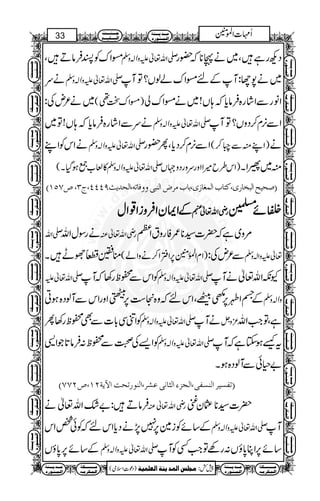 33
اُمہاتُ المؤمنین
دیکھ رہے ہیں، میں نے جاناپہچانا کہ حضور صلی اللہ تعالیٰ علیہ والہ وسلم مسواک کو پسند فرماتے ہیں،
میں نے پوچھا: آپ کے لئے مسواک لے لوں؟ تو آپ صلی اللہ تعالیٰ علیہ والہ وسلم نے سر
انور سے اشارہ فرمایا کہ ہاں! میں نے مسواک لی (مسواک سخت تھی) میں نے عرض کی:
اسے نرم کردوں؟ تو آپ صلی اللہ تعالیٰ علیہ والہ وسلم نے سر سے اشارہ فرمایا کہ ہاں! تو میں
نے (اپنے منہ سے چبا کر) اسے نرم کردیا، پھر حضور صلی اللہ تعالیٰ علیہ والہ وسلم نے اس کو اپنے
منہ میں پھیرا۔ (اس طرح میرا اور سرور دوجہاں صلی اللہ تعالیٰ علیہ والہ وسلم کا لعاب جمع ہوگیا۔)
(صحیح البخاری، کتاب المغازی، باب مرض النبی ووفاتہ، الحدیث۴۴۴۹، ج۳، ص۱۵۷)
خلفائے مسلمین رضی اللہ تعالیٰ عنہم کے ایمان افروز اقوال
مروی ہے کہ حضرت سیدنا عمر فاروق اعظم رضی اللہ تعالیٰ عنہ نے رسول اللہ صلی اللہ
تعالیٰ علیہ والہ وسلم سے عرض کی: (ام المؤمنین پر افترا کرنے والے) منافقین قطعاً جھوٹے ہیں۔
کیونکہ اللہ تعالیٰ نے آپ صلی اللہ تعالیٰ علیہ والہ وسلم کو اس سے محفوظ رکھا کہ آپ صلی اللہ تعالیٰ علیہ
والہ وسلم کے جسم اطہر پر مکھی بیٹھے، اس لئے کہ وہ نجاست پر بیٹھتی اور اس سے آلودہ ہوتی
ہے، تو جب اللہ عزوجل نے آپ صلی اللہ تعالیٰ علیہ والہ وسلم کو اتنی سی بات سے بھی محفوظ رکھا پھر
یہ کیسے ہوسکتا ہے کہ آپ صلی اللہ تعالیٰ علیہ والہ وسلم کو ایسے کی صحبت سے محفوظ نہ فرماتا جو ایسی
بے حیائی سے آلودہ ہو۔
(تفسیر النسفی، الجزء الثانی عشر، النور تحت الآیۃ۱۲، ص۷۷۲)
حضرت سیدنا عثمان غنی رضی اللہ تعالیٰ عنہ فرماتے ہیں: بے شک اللہ تعالیٰ نے
آپ صلی اللہ تعالیٰ علیہ والہ وسلم کے سائے کو زمین پر نہیں پڑنے دیا اس لئے کہ کوئی شخص اس
سائے پر اپنا پاؤں نہ رکھے تو جب کسی کو آپ صلی اللہ تعالیٰ علیہ والہ وسلم کے سائے پر پاؤں
پیش کش: مجلس المدینۃ العلمیۃ (دعوت اسلامی)